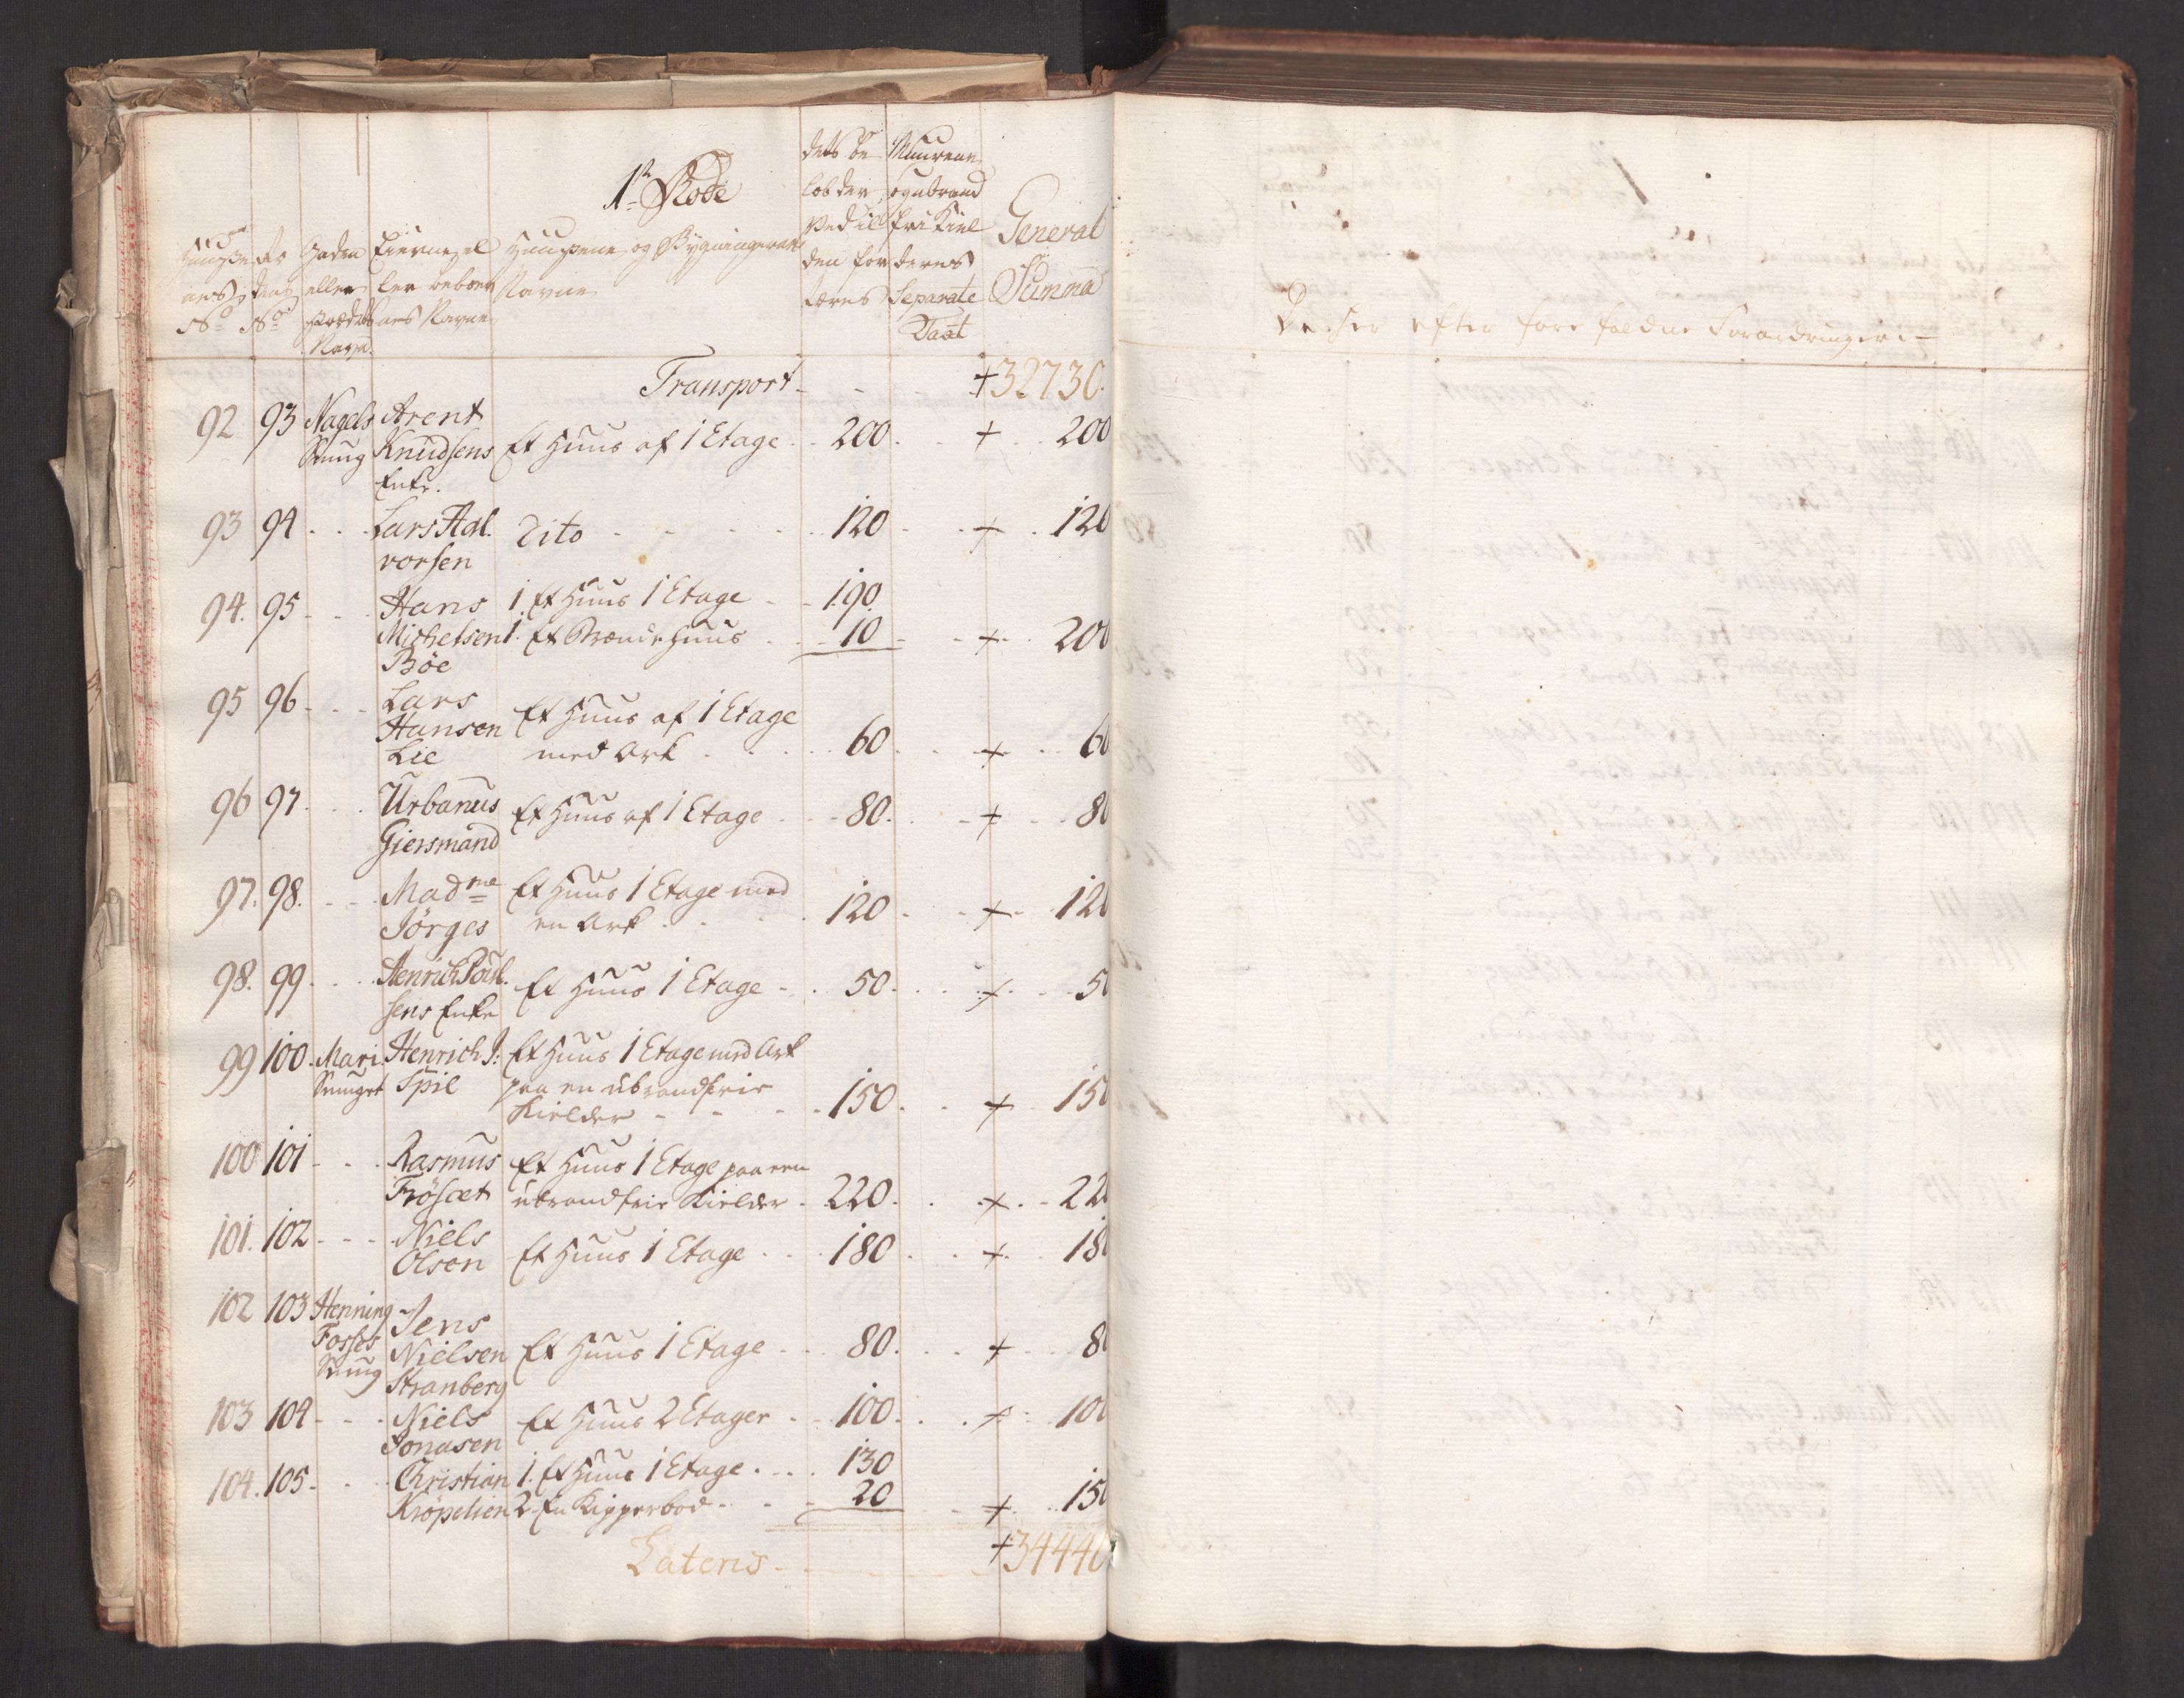 1ste Rode
Huusenes No
No
Gaden eller Strædets Navn.
Eierne eller Beboernes Navne
Huusene og Bygningernes Navne
General Summa
Separate Taxt
Transport - - +32730.
92 93 Nagels Smug Arent Knudsens Enke. Et Huus af 1 Etage . . 200 . . + . . 200
93 94 . . . Lars Hal.vorsen Dito - - - - . . 120 . . + . 120
94. 95 - - - Hans Michelsen Böe 1. Et Huus 1 Etage - - 190.
1. Et Brænde Huus . . 10 - - + . . 200
95 96 - - - Lars Hansen Lie Et Huus af 1 Etage
med Ark . . . . 60 . . + . . 60
96 97 . . . Urbanus Giersmand Et Huus af 1 Etage . . . 80. . . + . . 80
97. 98. - - - Madme Jörges Et Huus 1 Etage med
en Ark . . . . 120 . . + . . 120
98. 99 . . . Henrich Poulsens Enke Et Huus 1 Etage - . . 50 . . . + . . 50
99 100. Mari Smuget Henrich J: Spil Et Huus 1 Etage med Ark
paa en ubrandfrie
Kielder - - - - 150. . . + . . 150
100 101 - - . Rasmus Frösæt Et Huus 1 Etage paa een
ubrandfrie Kielder - 220. . . + . . 220
101. 102 - - - Niels Olsen Et Huus 1 Etage . . . 180 . . + . . 180
102 103 Henning Fosses Smug Jens Nielsen Stranberg Et Huus 1 Etage - - . 80. . . + . . 80
103 104 - - . Niels Jonasen Et Huus 2 Etager . . . 100. . . + . . 100
104. 105 - - . Christian Kröpelien 1. Et Huus 1 Etage . . . . 130
2. En Kipperbod - - - 20 - - + . . 150
Lateris - - - +34440
efter fore faldne Forandringer. -